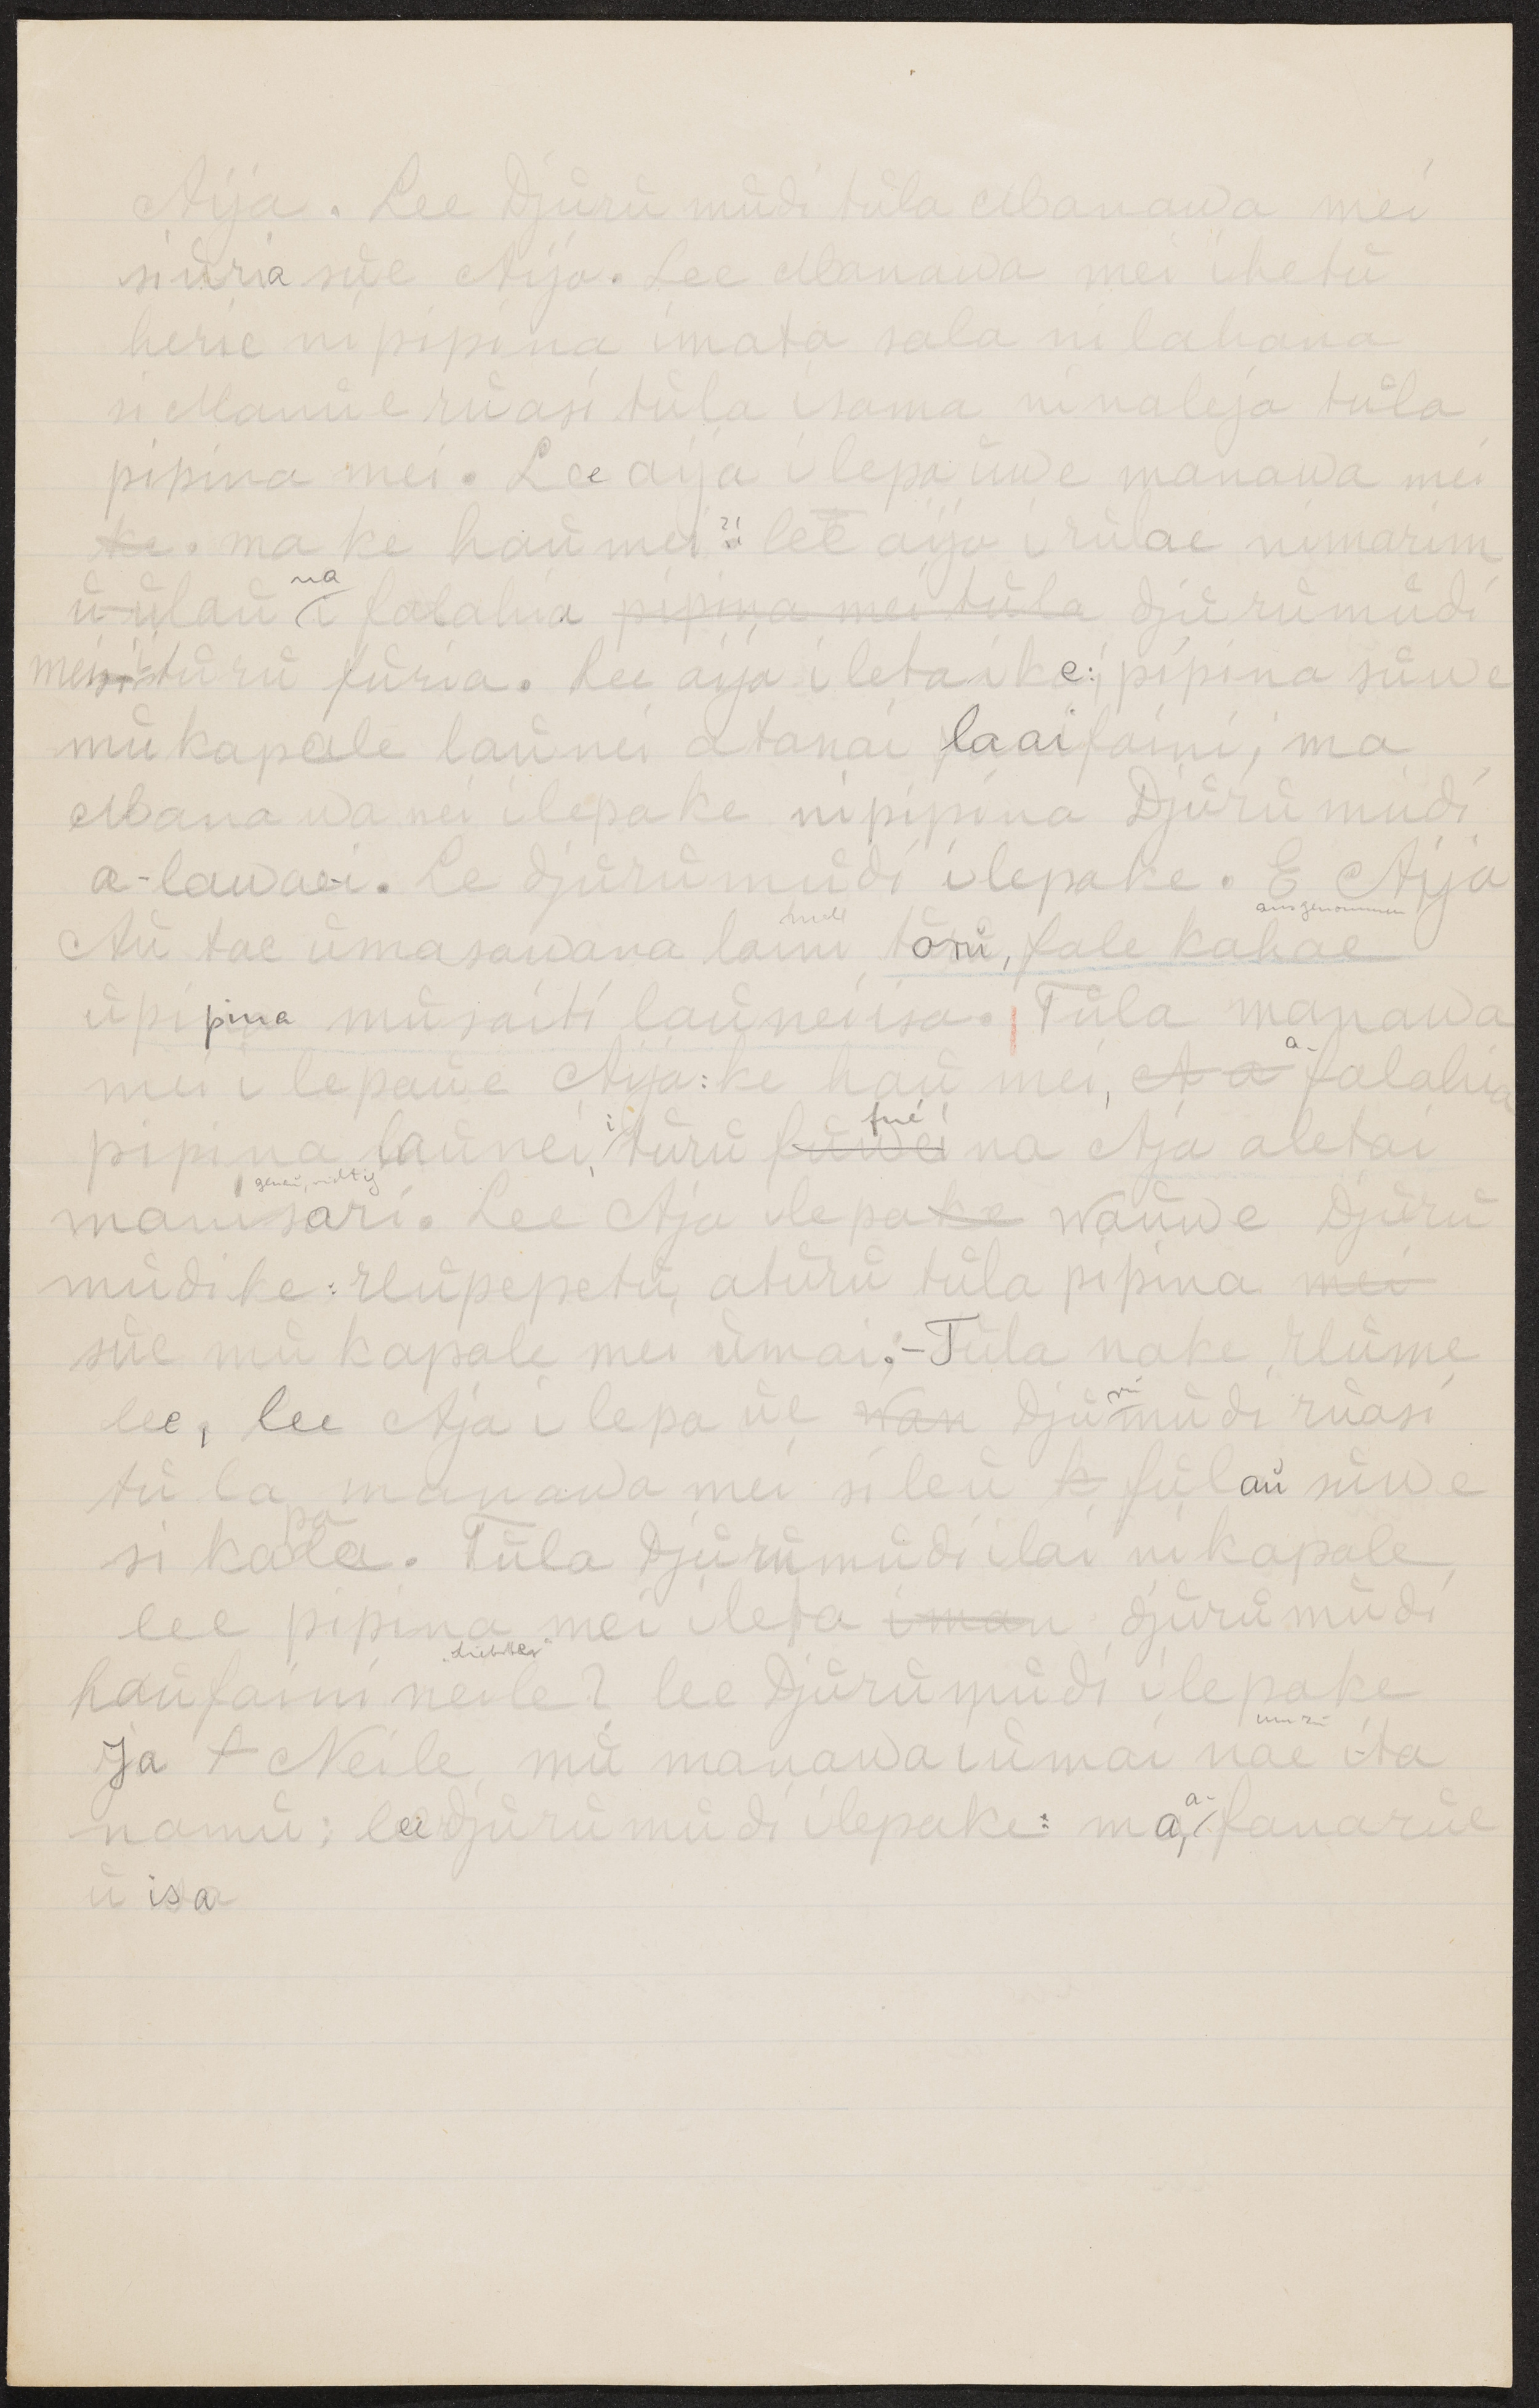 Aija. Lee Djürü müdi tüla Manawa mei
siüria süe Aija. Lee Manawa mei ihetü
herie ni pipina imata sala ni lahana
si Manüe rüasi tüla isama ninaleja tüla
pipina mei. Lee aija ilepa üwe manawa mei
ke. ma ke haü mei?! lee aija i rülae nimarim
ü ülaü na i falahia pipina mei tüla djürümüdi
mei si türü füria. Lee aija iletaike: pipina süwe
mü kapale laünei atanai laai faini, ma
Manawa nei ilepake nipipina Djürümüdi
a-lawaei. Le djürümüdi ilepake. E Aija
ausgenommen
Aü tae ümasawana laini törü, fale kahae
üpipina müsaiti laüneiisa. Tüla manawa
mei ilepaüe Aija: ke haü mei, A a a- falahia
pipina laünei, i türü füwei füé na Aja aletai
genau, richtig
manisari. Lee Aja ilepake waüwe Djürü
müdike: rlüpepetü, atürü tüla pipina mei
süe mü kapale mei ümai; - Tüla nake rlüme
lee, lee Aja ilepa üe wan Djürümüdi rüasi
tüla manawa mei sileü k fülaü süwe
si kapale. Tüla Djürümüdi ilai ni kapale,
lee pipina mei ileta iman djürümüdi
haüfaini neile? lee Djürümüdi ilepake
Ja A Neile, mü manawa iümai nae ita
namü; lee djürümüdi ilepake: ma, a- fanarüe
ü isa